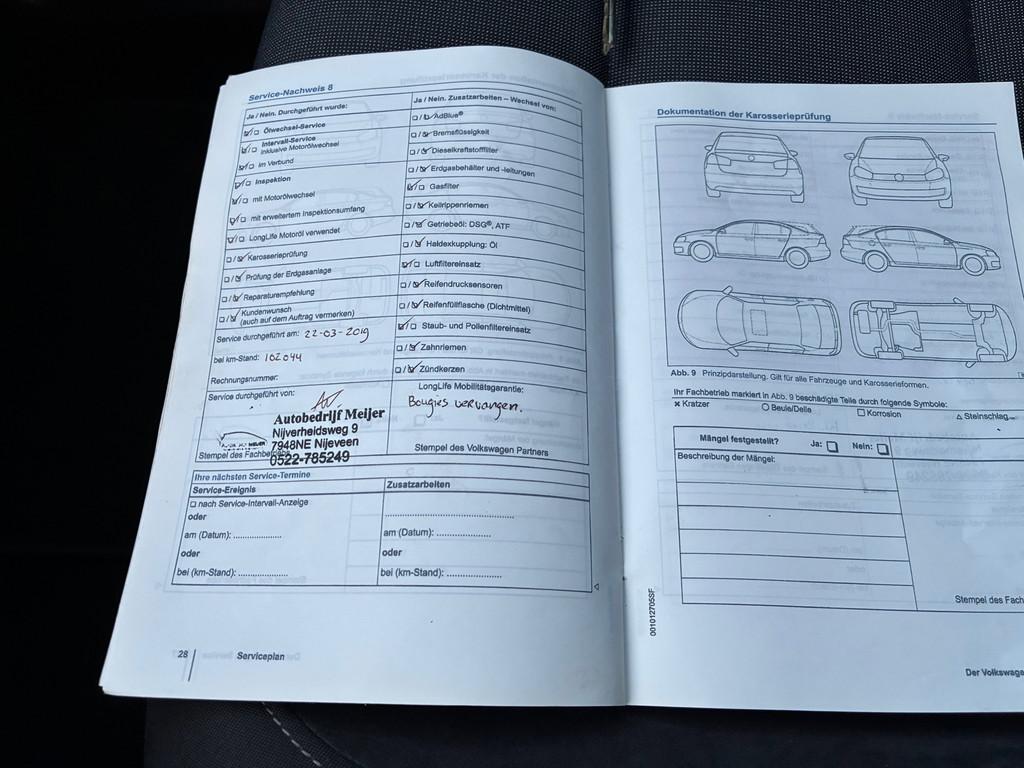 Service-Nachweis 8
Ja / Nein. Durchgeführt wurde:
Ölwechsel-Service
Intervall-Service
Inklusive Motorölwechsel
im Verbund
Inspektion
mit Motorölwechsel
mit erweitertem Inspektionsumfang
LongLife Motoröl verwendet
Karosserieprüfung
Prüfung der Erdgasanlage
Reparaturempfehlung
Kundenwunsch
(auch auf dem Auftrag vermerken)
Service durchgeführt am: 22-03-2019
bei km-Stand: 102044
Rechnungsnummer:
Service durchgeführt von:
Autobedrijf Meijer
Nijverheidsweg 9
7948NE Nijeveen
0522-785249
Stempel des Fachbetriebs
Ja / Nein. Zusatzarbeiten – Wechsel von:
AdBlue®
Bremsflüssigkeit
Dieselkraftstofffilter
Erdgasbehälter und -leitungen
Gasfilter
Keilrippenriemen
Getriebeöl: DSG®, ATF
Haldexkupplung: Öl
Luftfiltereinsatz
Reifendrucksensoren
Reifenfüllflasche (Dichtmittel)
Staub- und Pollenfiltereinsatz
Zahnriemen
Zündkerzen
LongLife Mobilitätsgarantie:
Bougies vervangen.
Stempel des Volkswagen Partners
Ihre nächsten Service-Termine
Service-Ereignis
nach Service-Intervall-Anzeige
oder
am (Datum): ....................
oder
bei (km-Stand): ....................
Zusatzarbeiten
am (Datum): ....................
oder
bei (km-Stand): ....................
28 Serviceplan
Dokumentation der Karosserieprüfung
Abb. 9 Prinzipdarstellung. Gilt für alle Fahrzeuge und Karosserieformen.
Ihr Fachbetrieb markiert in Abb. 9 beschädigte Teile durch folgende Symbole:
× Kratzer ○ Beule/Delle □ Korrosion △ Steinschlag
Mängel festgestellt? Ja: □ Nein: □
Beschreibung der Mängel:
Stempel des Fach
001012705SF
Der Volkswage